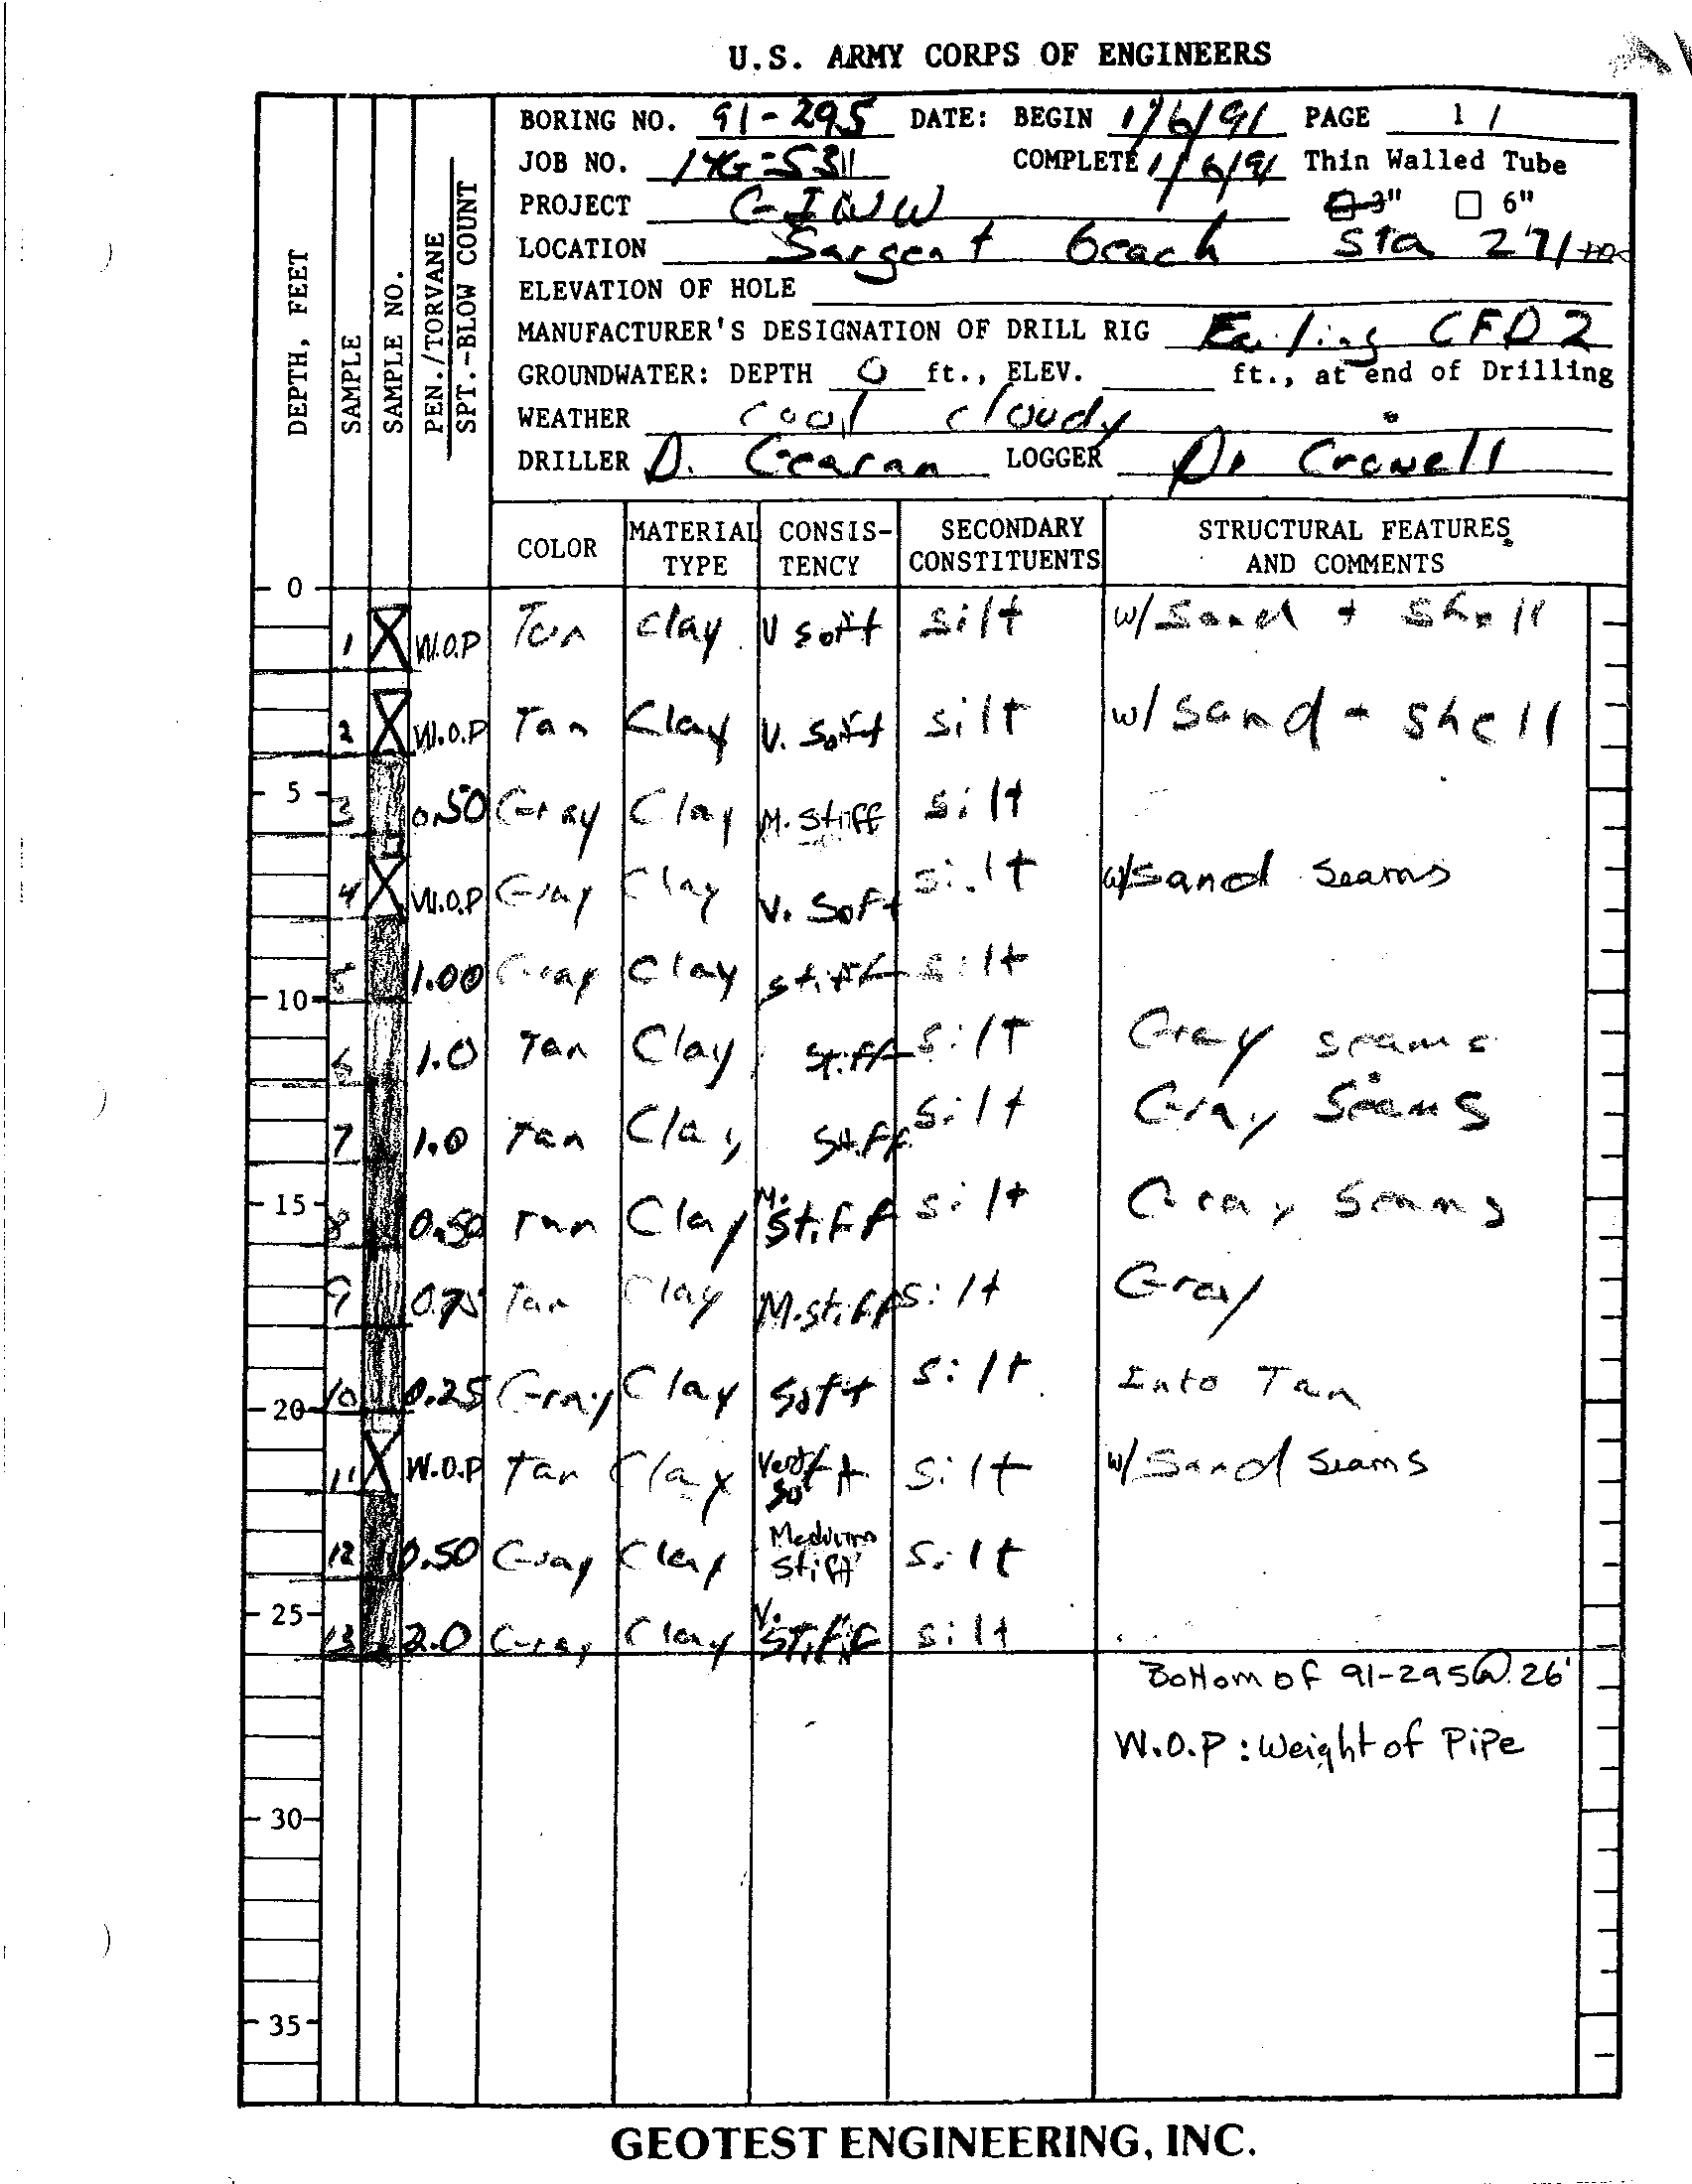 U.S. ARMY CORPS OF ENGINEERS
BORING NO. 91-295 DATE: BEGIN 1/6/91 PAGE 1 /
JOB NO. COMPLETE 1/6/91 Thin Walled Tube
PROJECT GIWW 3" 6"
LOCATION Sargent beach Sta 271+00
ELEVATION OF HOLE
MANUFACTURER'S DESIGNATION OF DRILL RIG Failing CFD2
GROUNDWATER: DEPTH 0 ft., ELEV. ft., at end of Drilling
WEATHER cool cloudy
DRILLER D. LOGGER D. Crowell
DEPTH, FEET
SAMPLE
SAMPLE NO.
PEN./TORVANE
SPT.-BLOW COUNT
COLOR MATERIAL TYPE CONSIS-TENCY SECONDARY CONSTITUENTS STRUCTURAL FEATURES AND COMMENTS
0
1 W.O.P Tan Clay V soft silt w/ Sand + Shell
2 W.O.P Tan Clay V. Soft silt w/ Sand - Shell
5
3 0.50 Gray Clay M. Stiff silt
4 W.O.P Gray Clay V. Soft silt w/Sand Seams
5 1.00 Gray Clay stiff silt
10
6 1.0 Tan Clay Stiff silt Gray seams
7 1.0 Tan Clay Stiff silt Gray Seams
15
8 0.50 Tan Clay M. Stiff silt Gray Seams
9 0.75 Tan Clay M. Stiff silt Gray
10 0.25 Gray Clay Soft silt Into Tan
20
11 W.O.P Tan Clay Very Soft silt w/ Sand Seams
12 0.50 Gray Clay Medium Stiff silt
25
13 2.0 Gray Clay V. Stiff silt
Bottom of 91-295 @ 26'
W.O.P : Weight of Pipe
30
35
GEOTEST ENGINEERING, INC.